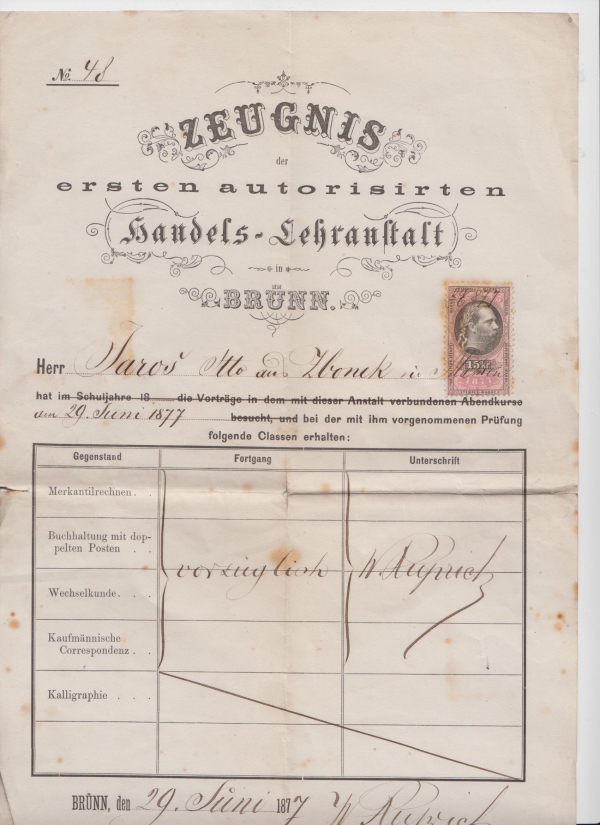 No. 48
ZEUGNIS
der
ersten autorisirten
Handels-Lehranstalt
in
BRÜNN.
15 KR
1877
Herr Jaroš Otto aus Zbonek in
hat im Schuljahre 18 die Vorträge in dem mit dieser Anstalt verbundenen Abendkurse
am 29. Juni 1877 besucht, und bei der mit ihm vorgenommenen Prüfung
folgende Classen erhalten:
Gegenstand Fortgang Unterschrift
Merkantilrechnen. .
Buchhaltung mit dop-
pelten Posten . .
vorzüglich
Wechselkunde. . .
Kaufmännische
Correspondenz . .
Kalligraphie . . .
BRÜNN, den 29. Juni 1877